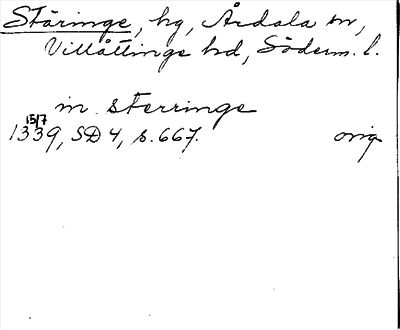 Stäringe, hg, Årdala sn,
Villåttinge hd, Söderm. l.
in sterringe
15/7
1339, SD 4, s. 667. orig